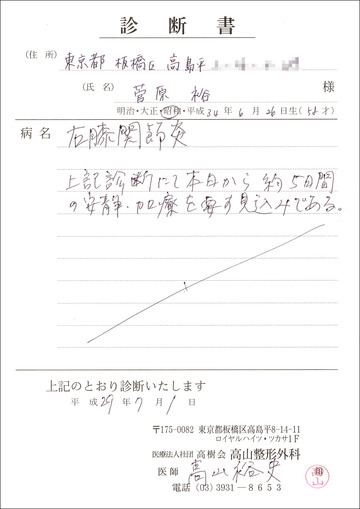 診断書
(住所) 東京都板橋区高島平
(氏名) 菅原 裕 様
明治・大正・昭和・平成34年6月26日生(58才)
病名 右膝関節炎
上記診断にて本日から約5日間
の安静・加療を要す見込みである。
上記のとおり診断いたします
平成29年7月1日
〒175-0082 東京都板橋区高島平8-14-11
ロイヤルハイツ・ツカサ1F
医療法人社団 高樹会 高山整形外科
医師 高山裕史
電話 (03)3931-8653
高山